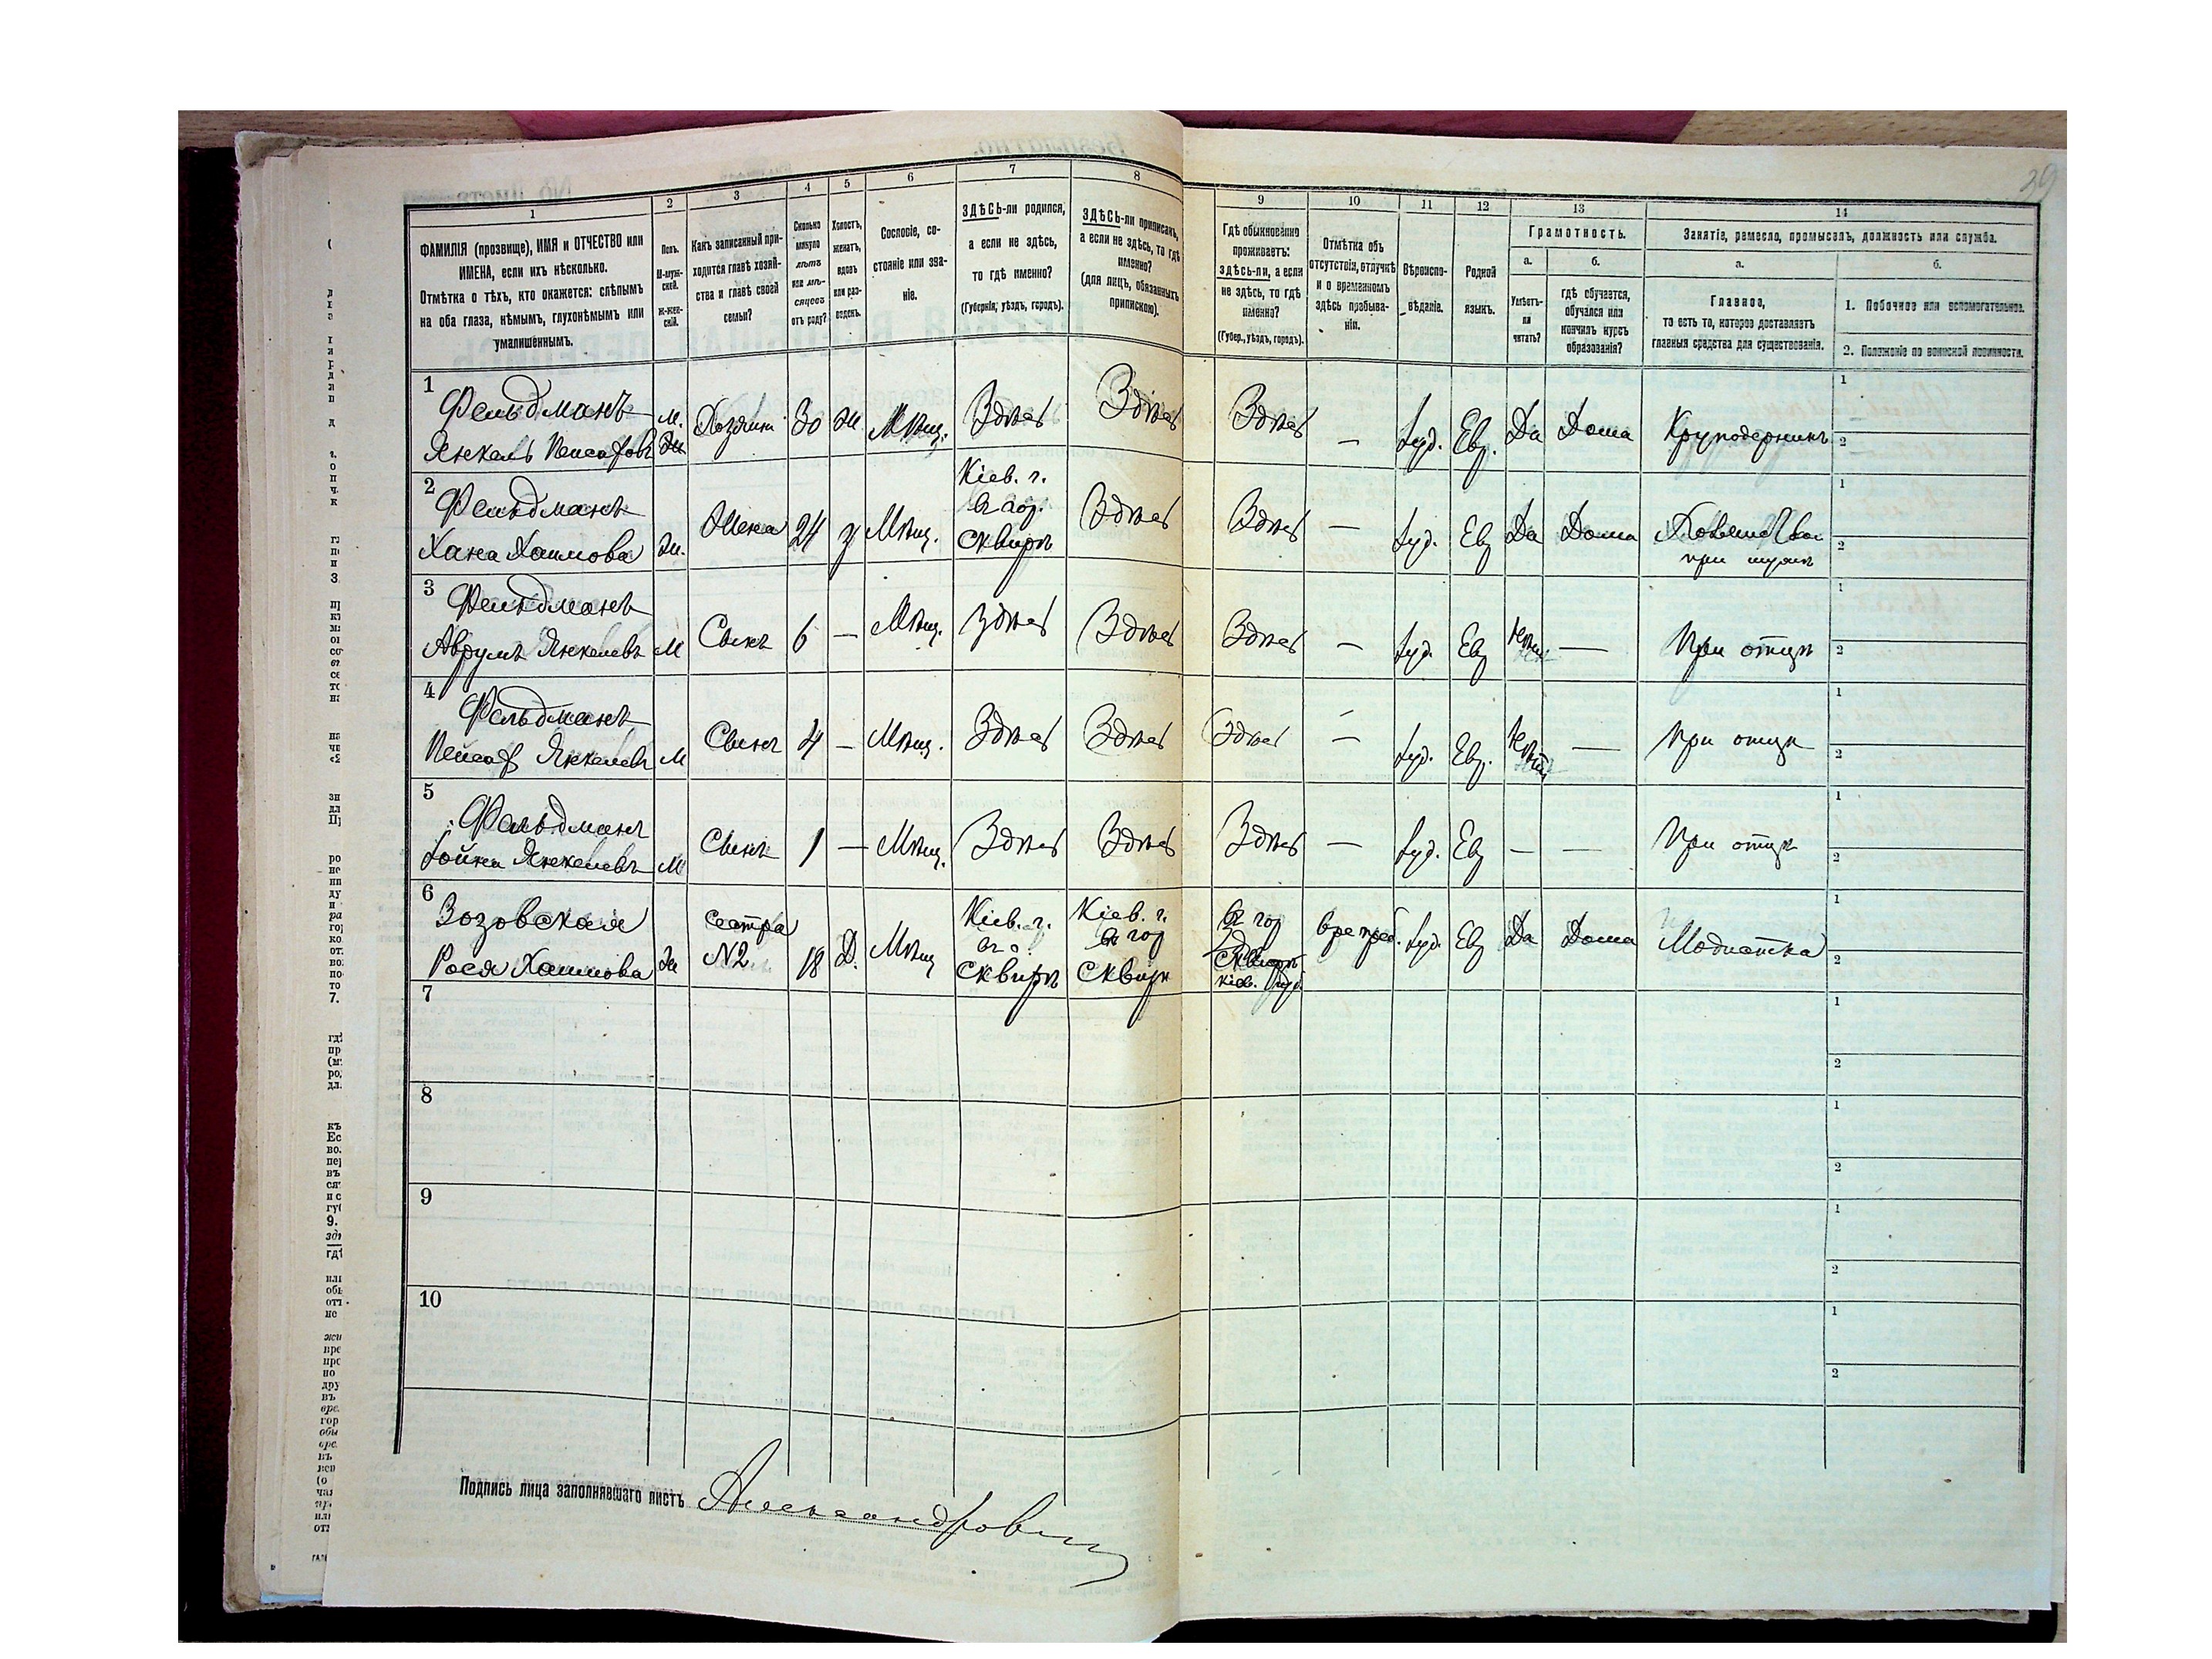 39
1
2
3
4
5
6
7
8
9
10
11
12
13
14
ФАМИЛІЯ (прозвище), ИМЯ и ОТЧЕСТВО или
ИМЕНА, если ихъ нѣсколько.
Отмѣтка о тѣхъ, кто окажется: слѣпымъ
на оба глаза, нѣмымъ, глухонѣмымъ или
умалишеннымъ.
Полъ.
М-муж-
ской.
Ж-жен-
скій.
Какъ записанный при-
ходится главѣ хозяй-
ства и главѣ своей
семьи?
Сколько
минуло
лѣтъ
или мѣ-
сяцевъ
отъ роду?
Холостъ,
женатъ,
вдовъ
или раз-
веденъ.
Сословіе, со-
стояніе или зва-
ніе.
ЗДѢСЬ-ли родился,
а если не здѣсь,
то гдѣ именно?
(Губернія, уѣздъ, городъ).
ЗДѢСЬ-ли приписанъ,
а если не здѣсь, то гдѣ
именно?
(для лицъ, обязанныхъ
припискою).
Гдѣ обыкновенно
проживаетъ:
здѣсь-ли, а если
не здѣсь, то гдѣ
именно?
(Губер., уѣздъ, городъ).
Отмѣтка объ
отсутствіи, отлучкѣ
и о временномъ
здѣсь пребыва-
ніи.
Вѣроиспо-
вѣданіе.
Родной
языкъ.
Грамотность.
а.
Умѣетъ-
ли
читать?
б.
гдѣ обучается,
обучался или
кончилъ курсъ
образованія?
Занятіе, ремесло, промыселъ, должность или служба.
а.
Главное,
то есть то, которое доставляетъ
главныя средства для существованія.
б.
1. Побочное или вспомогательное.
2. Положеніе по воинской повинности.
1
Фельдманъ
Янкель Пейсахов М. Хозяинъ 30 Ж Мѣщ. Здѣсь Здѣсь Здѣсь — Іуд. Евр. Да Дома Круподерникъ
1
2
2
Фельдманъ
Хана Хаимова Ж. Жена 24 з Мѣщ.
Кіев. г.
въ гор.
Сквирѣ
Здѣсь Здѣсь — Іуд. Евр Да Дома
при мужѣ
1
2
3
Фельдманъ
Аврумъ Янкелевъ М Сынъ 6 — Мѣщ. Здѣсь Здѣсь Здѣсь — Іуд. Евр — При отцѣ
1
2
4
Фельдманъ
Пейсах Янкелевъ М Сынъ 4 — Мѣщ. Здѣсь Здѣсь Здѣсь — Іуд. Евр. — При отцѣ
1
2
5
Фельдманъ
Янкелевъ М Сынъ 1 — Мѣщ. Здѣсь Здѣсь Здѣсь — Іуд. Евр — — При отцѣ
1
2
6
Зозовская
Рося Хаимова Ж
сестра
№2
18 Д. Мѣщ
Кіев. г.
въ г.
Сквирѣ
Кіев. г.
въ гор
Сквирѣ
въ гор
Сквирѣ
Кіев. губ.
вре преб. Іуд. Евр Да Дома Модистка
1
2
7
1
2
8
1
2
9
1
2
10
1
2
Подпись лица заполнявшаго листъ Александрович